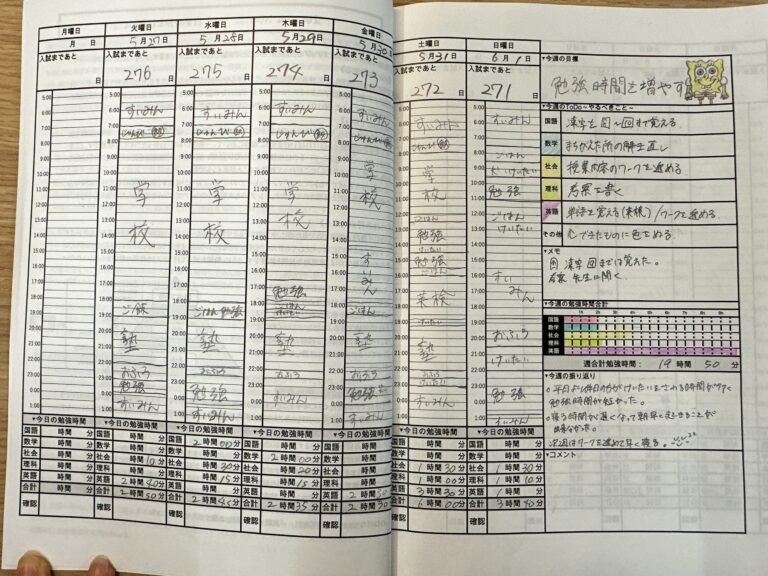 月曜日 火曜日 水曜日 木曜日 金曜日
月 日 5月27日 5月28日 5月29日 5月30日
入試まであと 入試まであと 入試まであと 入試まであと 入試まであと
日 276日 275日 274日 273日
5:00
6:00 すいみん すいみん すいみん すいみん
7:00 じゅんび じゅんび じゅんび じゅんび
8:00
9:00
10:00
11:00 学 学 学 学
12:00
13:00 校 校 校 校
14:00
15:00 すいみん
16:00
17:00 勉強
18:00
19:00 ごはん ごはん 勉強 ごはん
20:00
21:00 塾 塾 塾 塾
22:00 おふろ おふろ おふろ おふろ
23:00 勉強 勉強 勉強 勉強
0:00 すいみん すいみん すいみん すいみん
1:00
▼今日の勉強時間 ▼今日の勉強時間 ▼今日の勉強時間 ▼今日の勉強時間 ▼今日の勉強時間
国語 時間 分
数学 時間 分
社会 時間 分
理科 時間 分
英語 時間 分
合計 時間 分 2時間50分 2時間45分 2時間35分 2時間30分
確認 確認 確認 確認 確認
土曜日 日曜日
5月31日 6月1日
入試まであと 入試まであと
272日 271日
すいみん すいみん
じゅんび
ごはん
学校 けいたい
勉強
ごはん ごはん
勉強 けいたい
けいたい
勉強
すいみん
英検
おふろ
塾 けいたい
おふろ
勉強
すいみん すいみん
▼今日の勉強時間 ▼今日の勉強時間
国語 時間 分 国語 時間 分
数学 時間 分 数学 時間 分
社会 1時間30分 社会 1時間30分
理科 1時間00分 理科 1時間10分
英語 3時間30分 英語 時間
合計 6時間00分 合計 3時間40分
確認 確認
▼今週の目標
勉強時間を増やす
▼今週のToDo~やるべきこと~
国語 漢字を
数学 まちがえた所の解き直し
社会 授業内容のワークを進める
理科 考察を書く
英語 単語を覚える(英検)/ワークを進める
その他 できたものに色をぬる
▼メモ
漢字 までは覚えた。
考察 先生に聞く。
▼今週の勉強時間合計
国語
数学
社会
理科
英語
週合計勉強時間: 19時間50分
▼今週の振り返り
○平日より休日の方がけいたいをさわる時間が
勉強時間が短かった。
○寝る時間が遅くなって朝早く起きることが
出来なかった。
次週はワークを進めて早く寝る。
▼コメント